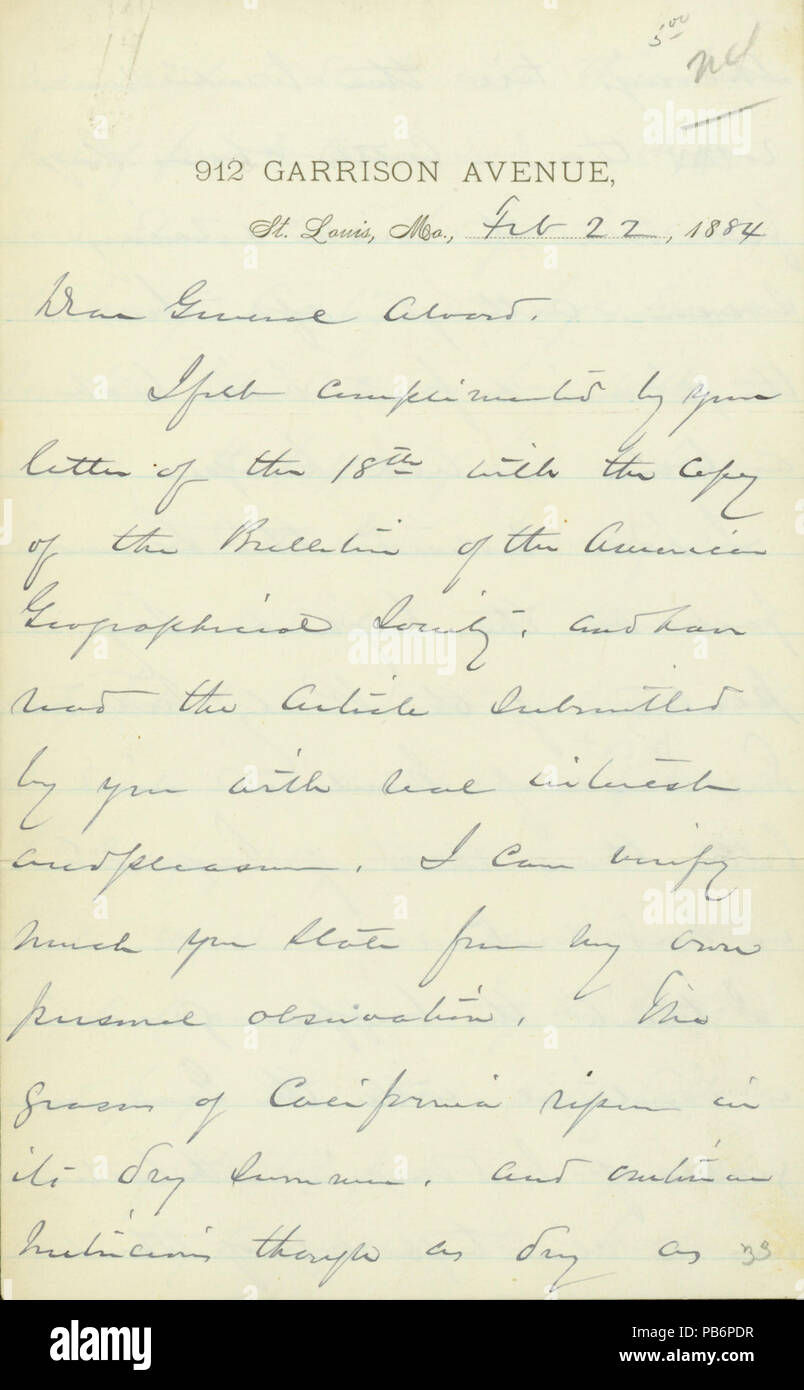 5 00
912 GARRISON AVENUE,
St. Louis, Mo., Feb 22, 1884
Dear General Alvord.
I feel complimented by your
letter of the 18th with the copy
of the Bulletin of the American
Geographical Society, and have
read the article submitted
by you with real interest
and pleasure. I can verify
much you state from my own
personal observation. The
grasses of California ripen in
its dry summer, and continue
nutricious though as dry as
alamy
Image ID: PB6PDR
www.alamy.com